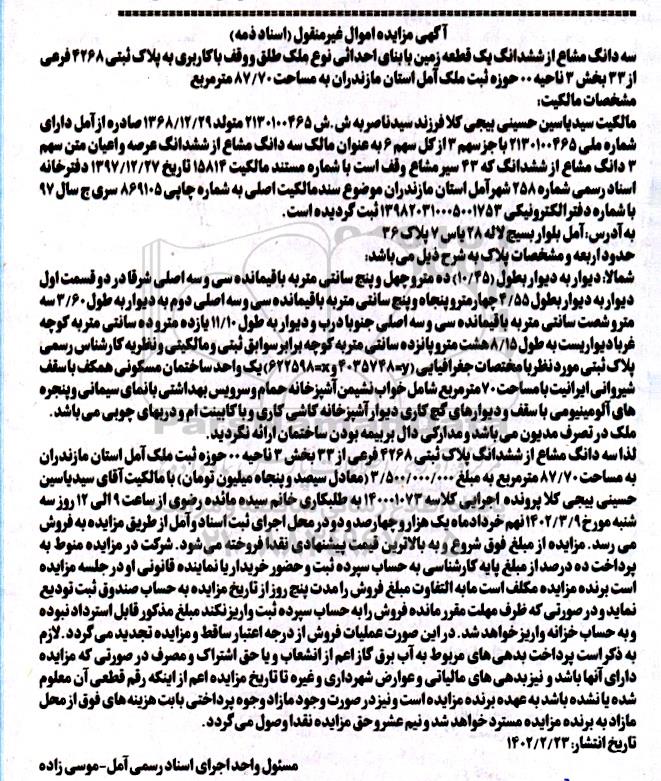 آگهی مزایده اموال غیرمنقول (اسناد ذمه)
سه دانگ مشاع از ششدانگ یک قطعه زمین با بنای احداثی نوع ملک طلق و وقف با کاربری به پلاک ثبتی ۴۲۶۸ فرعی
از ۳۳ بخش ۳ ناحیه ۰۰ حوزه ثبت ملک آمل استان مازندران به مساحت ۸۷/۷۰ مترمربع
مشخصات مالکیت:
مالکیت سیدیاسین حسینی بیجی کلا فرزند سیدناصر به ش.ش ۲۱۳۰۱۰۰۴۶۵ متولد ۱۳۶۸/۱۲/۲۹ صادره از آمل دارای
شماره ملی ۲۱۳۰۱۰۰۴۶۵ با جز سهم ۳ از کل سهم ۶ به عنوان مالک سه دانگ مشاع از ششدانگ عرصه و اعیان متن سهم
۳ دانگ مشاع از ششدانگ که ۴۳ سیر مشاع وقف است با شماره مستند مالکیت ۱۵۸۱۴ تاریخ ۱۳۹۷/۱۲/۲۷ دفترخانه
اسناد رسمی شماره ۲۵۸ شهر آمل استان مازندران موضوع سند مالکیت اصلی به شماره چاپی ۸۶۹۱۰۵ سری ج سال ۹۷
با شماره دفتر الکترونیکی ۱۳۹۸۲۰۳۱۰۰۰۵۰۰۱۷۵۳ ثبت گردیده است.
به آدرس: آمل بلوار بسیج لاله ۲۸ یاس ۷ پلاک ۳۶
حدود اربعه و مشخصات پلاک به شرح ذیل می باشد:
شمالا: دیوار به دیوار بطول (۱۰/۴۵) ده متر و چهل و پنج سانتی متر به باقیمانده سی و سه اصلی شرقا در دو قسمت اول
دیوار به دیوار بطول ۴/۵۵ چهارمتر و پنجاه و پنج سانتی متر به باقیمانده سی و سه اصلی دوم به دیوار به طول ۳/۶۰ سه
متر و شصت سانتی متر به باقیمانده سی و سه اصلی جنوبا درب و دیوار به طول ۱۱/۱۰ یازده متر و ده سانتی متر به کوچه
غربا دیواریست به طول ۸/۱۵ هشت متر و پانزده سانتی متر به کوچه برابر سوابق ثبتی و مالکیتی و نظریه کارشناس رسمی
پلاک ثبتی مورد نظر با مختصات جغرافیایی (y=۴۰۳۵۷۴۸ و x=۶۲۲۵۹۸) یک واحد ساختمان مسکونی همکف با سقف
شیروانی ایرانیت با مساحت ۷۰ مترمربع شامل خواب نشیمن آشپزخانه حمام و سرویس بهداشتی با نمای سیمانی و پنجره
های آلومینیومی با سقف و دیوارهای گچ کاری دیوار آشپزخانه کاشی کاری و با کابینت ام و دربهای چوبی می باشد.
ملک در تصرف مدیون می باشد و مدارکی دال بر بیمه بودن ساختمان ارائه نگردید.
لذا سه دانگ مشاع از ششدانگ پلاک ثبتی ۴۲۶۸ فرعی از ۳۳ بخش ۳ ناحیه ۰۰ حوزه ثبت ملک آمل استان مازندران
به مساحت ۸۷/۷۰ مترمربع به مبلغ ۳/۵۰۰/۰۰۰/۰۰۰ (معادل سیصد و پنجاه میلیون تومان) با مالکیت آقای سیدیاسین
حسینی بیجی کلا پرونده اجرایی کلاسه ۱۴۰۰۰۱۰۷۳ به طلبکاری خانم سیده مائده رضوی از ساعت ۹ الی ۱۲ روز سه
شنبه مورخ ۱۴۰۲/۳/۹ نهم خردادماه یک هزار و چهارصد و دو در محل اجرای ثبت اسناد و آمل از طریق مزایده به فروش
می رسد. مزایده از مبلغ فوق شروع و به بالاترین قیمت پیشنهادی نقدا فروخته می شود. شرکت در مزایده منوط به
پرداخت ده درصد از مبلغ پایه کارشناسی به حساب سپرده ثبت و حضور خریدار یا نماینده قانونی او در جلسه مزایده
است برنده مزایده مکلف است ما به التفاوت مبلغ فروش را مدت پنج روز از تاریخ مزایده به حساب صندوق ثبت تودیع
نماید و در صورتی که ظرف مهلت مقرر مانده فروش را به حساب سپرده ثبت واریز نکند مبلغ مذکور قابل استرداد نبوده
و به حساب خزانه واریز خواهد شد. در این صورت عملیات فروش از درجه اعتبار ساقط و مزایده تجدید می گردد. لازم
به ذکر است پرداخت بدهی های مربوط به آب برق گاز اعم از انشعاب و یا حق اشتراک و مصرف در صورتی که مزایده
دارای آنها باشد و نیز بدهی های مالیاتی و عوارض شهرداری و غیره تا تاریخ مزایده اعم از اینکه رقم قطعی آن معلوم
شده یا نشده باشد به عهده برنده مزایده است و نیز در صورت وجود مازاد وجوه پرداختی بابت هزینه های فوق از محل
مازاد به برنده مزایده مسترد خواهد شد و نیم عشر و حق مزایده نقدا وصول می گردد.
تاریخ انتشار: ۱۴۰۲/۲/۲۳
مسئول واحد اجرای اسناد رسمی آمل-موسی زاده